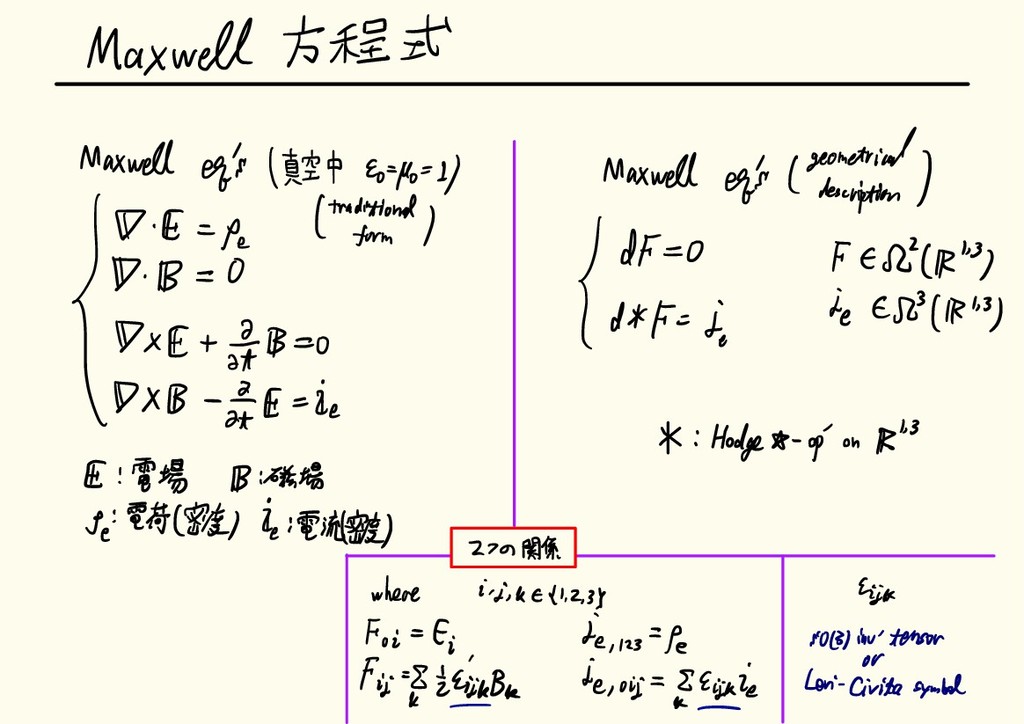 Maxwell 方程式
Maxwell eq's (真空中 ε₀=μ₀=1)
(traditional form)
∇·𝔼 = ρₑ
∇·𝔹 = 0
∇×𝔼 + ∂/∂t 𝔹 = 0
∇×𝔹 − ∂/∂t 𝔼 = 𝕚ₑ
𝔼 : 電場 𝔹 : 磁場
ρₑ : 電荷(密度) 𝕚ₑ : 電流(密度)
Maxwell eq's (geometrical description)
dF = 0 F ∈ Ω²(ℝ¹,³)
d*F = jₑ jₑ ∈ Ω³(ℝ¹,³)
* : Hodge *-op' on ℝ¹,³
2つの関係
where i,j,k ∈ {1,2,3}
F₀ᵢ = Eᵢ jₑ,₁₂₃ = ρₑ
Fᵢⱼ = Σₖ ½ εᵢⱼₖ Bₖ jₑ,₀ᵢⱼ = Σₖ εᵢⱼₖ iₑ
εᵢⱼₖ
SO(3) inv' tensor
or
Levi-Civita symbol